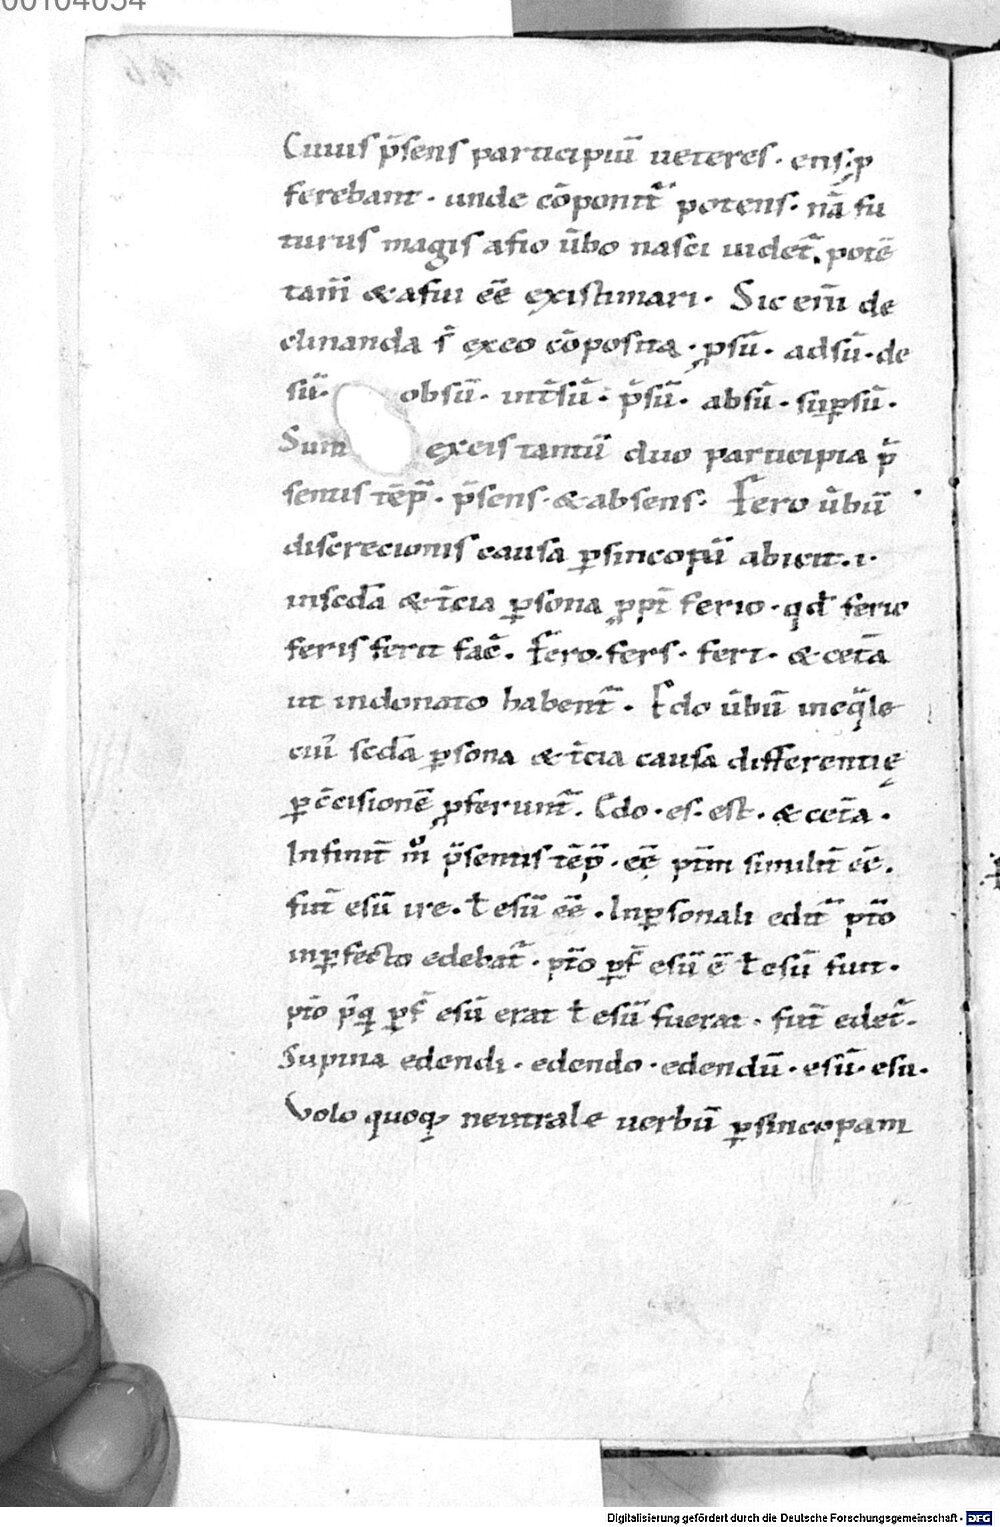 00104054
Cuius p̄sens participiū ueteres · ens · ꝓ
ferebant · unde cōponit᷑ potens · nā fu
turus magis afio ūbo nasci uidet᷑. potē
tam̄ & afui eē existimari · Sic eni̅ de
clinanda s̄ exeo cōposita · ꝓsū · adsū · de
sū · obsū · int̄sū · p̄sū · absū · suꝑsū ·
Sum exeis tantū duo participia p̄
sentis tēp̄ · p̄sens · & absens · Fero ūbū
discrecionis causa ꝑ sincopū abicit · i ·
in secd̄a & t̄cia ꝑsona ꝓpt̄ ferio · qd̄ ferio
feris ferit fac̄ · Fero · fers · fert · & cet̄a
ut in donato habent᷑ · Edo ūbū ineq̄le
cui̅ secd̄a ꝑsona & t̄cia causa differentię
ꝑ c̄cisionē ꝓferunt᷑ · Edo · es · est · & cet̄a ·
Infinit̄ m̊ p̄sentis tēp̄ · eē pt̄m simulit̄ eē ·
fut̄ esū ire · ƚ esū eē · Inꝑsonali edit᷑ pt̄o
inꝑfecto edebat᷑ · pt̄o ꝑf̄ esū ē ƚ esū fuit ·
pt̄o p̄q ꝑf̄ esū erat ƚ esū fuerat · fut̄ edet᷑ ·
Supina edendi · edendo · edendū · esū · esu ·
Volo quoq; neutrale uerbū ꝑ sincopam
Digitalisierung gefördert durch die Deutsche Forschungsgemeinschaft - DFG